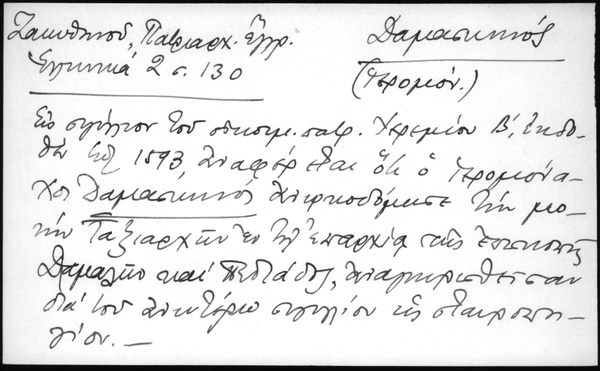 Ζακυθηνοῦ, Πατριαρχ. Ἔγγρ.
Ἑλληνικά 2 σ. 130
Δαμασκηνός
(Ἱερομόν.)
Εἰς σιγίλλιον τοῦ οἰκουμ. πατρ. Ἱερεμίου Β', ἐκδο-
θὲν 1593, ἀναφέρεται ὅτι ὁ ἱερομόνα-
χος Δαμασκηνός ἀνῳκοδόμησε τὴν μο-
νὴν Ταξιαρχῶν ἐν τῇ ἐπαρχίᾳ τῆς ἐπισκοπῆς
Δαμαλῶν καὶ Πεδιάδος, ἀναγνωρισθεῖσαν
διὰ τοῦ ἀνωτέρω σιγιλλίου ὡς σταυροπη-
γίου. —